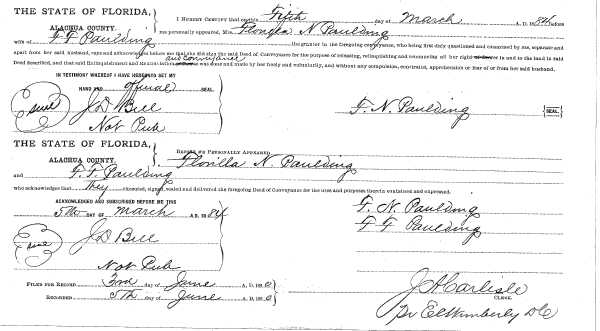 THE STATE OF FLORIDA,
ALACHUA COUNTY.
I HEREBY CERTIFY that on this Fifth day of March A. D. 1884 before
me personally appeared, Mrs. Florilla N Paulding
wife of F F Paulding the grantor in the foregoing conveyance, who being first duly questioned and examined by me, separate and
apart from her said husband, says and acknowledges before me that she did sign the said Deed of Conveyance for the purpose of releasing, relinquishing and renouncing all her right in and to the land in said
and conveyance
Deed described, and that said Relinquishment and Renunciation was done and made by her freely and voluntarily, and without any compulsion, constraint, apprehension or fear of or from her said husband.
IN TESTIMONY WHEREOF I HAVE HERETO SET MY
HAND AND official SEAL.
seal J D Bell
Not Pub
F. N. Paulding {SEAL.}
THE STATE OF FLORIDA,
ALACHUA COUNTY.
BEFORE ME PERSONALLY APPEARED Florilla N. Paulding
and F. F. Paulding
who acknowledges that they executed, signed, sealed and delivered the foregoing Deed of Conveyance for the uses and purposes therein contained and expressed.
ACKNOWLEDGED AND SUBSCRIBED BEFORE ME THIS
5th DAY OF March A. D. 1884
F. N. Paulding
F F Paulding
seal J D Bell
Not Pub
FILED FOR RECORD 3rd day of June A. D. 1890
RECORDED 5th day of June A. D. 1890
J A Carlisle
CLERK.
Pr E C Wimberly D C